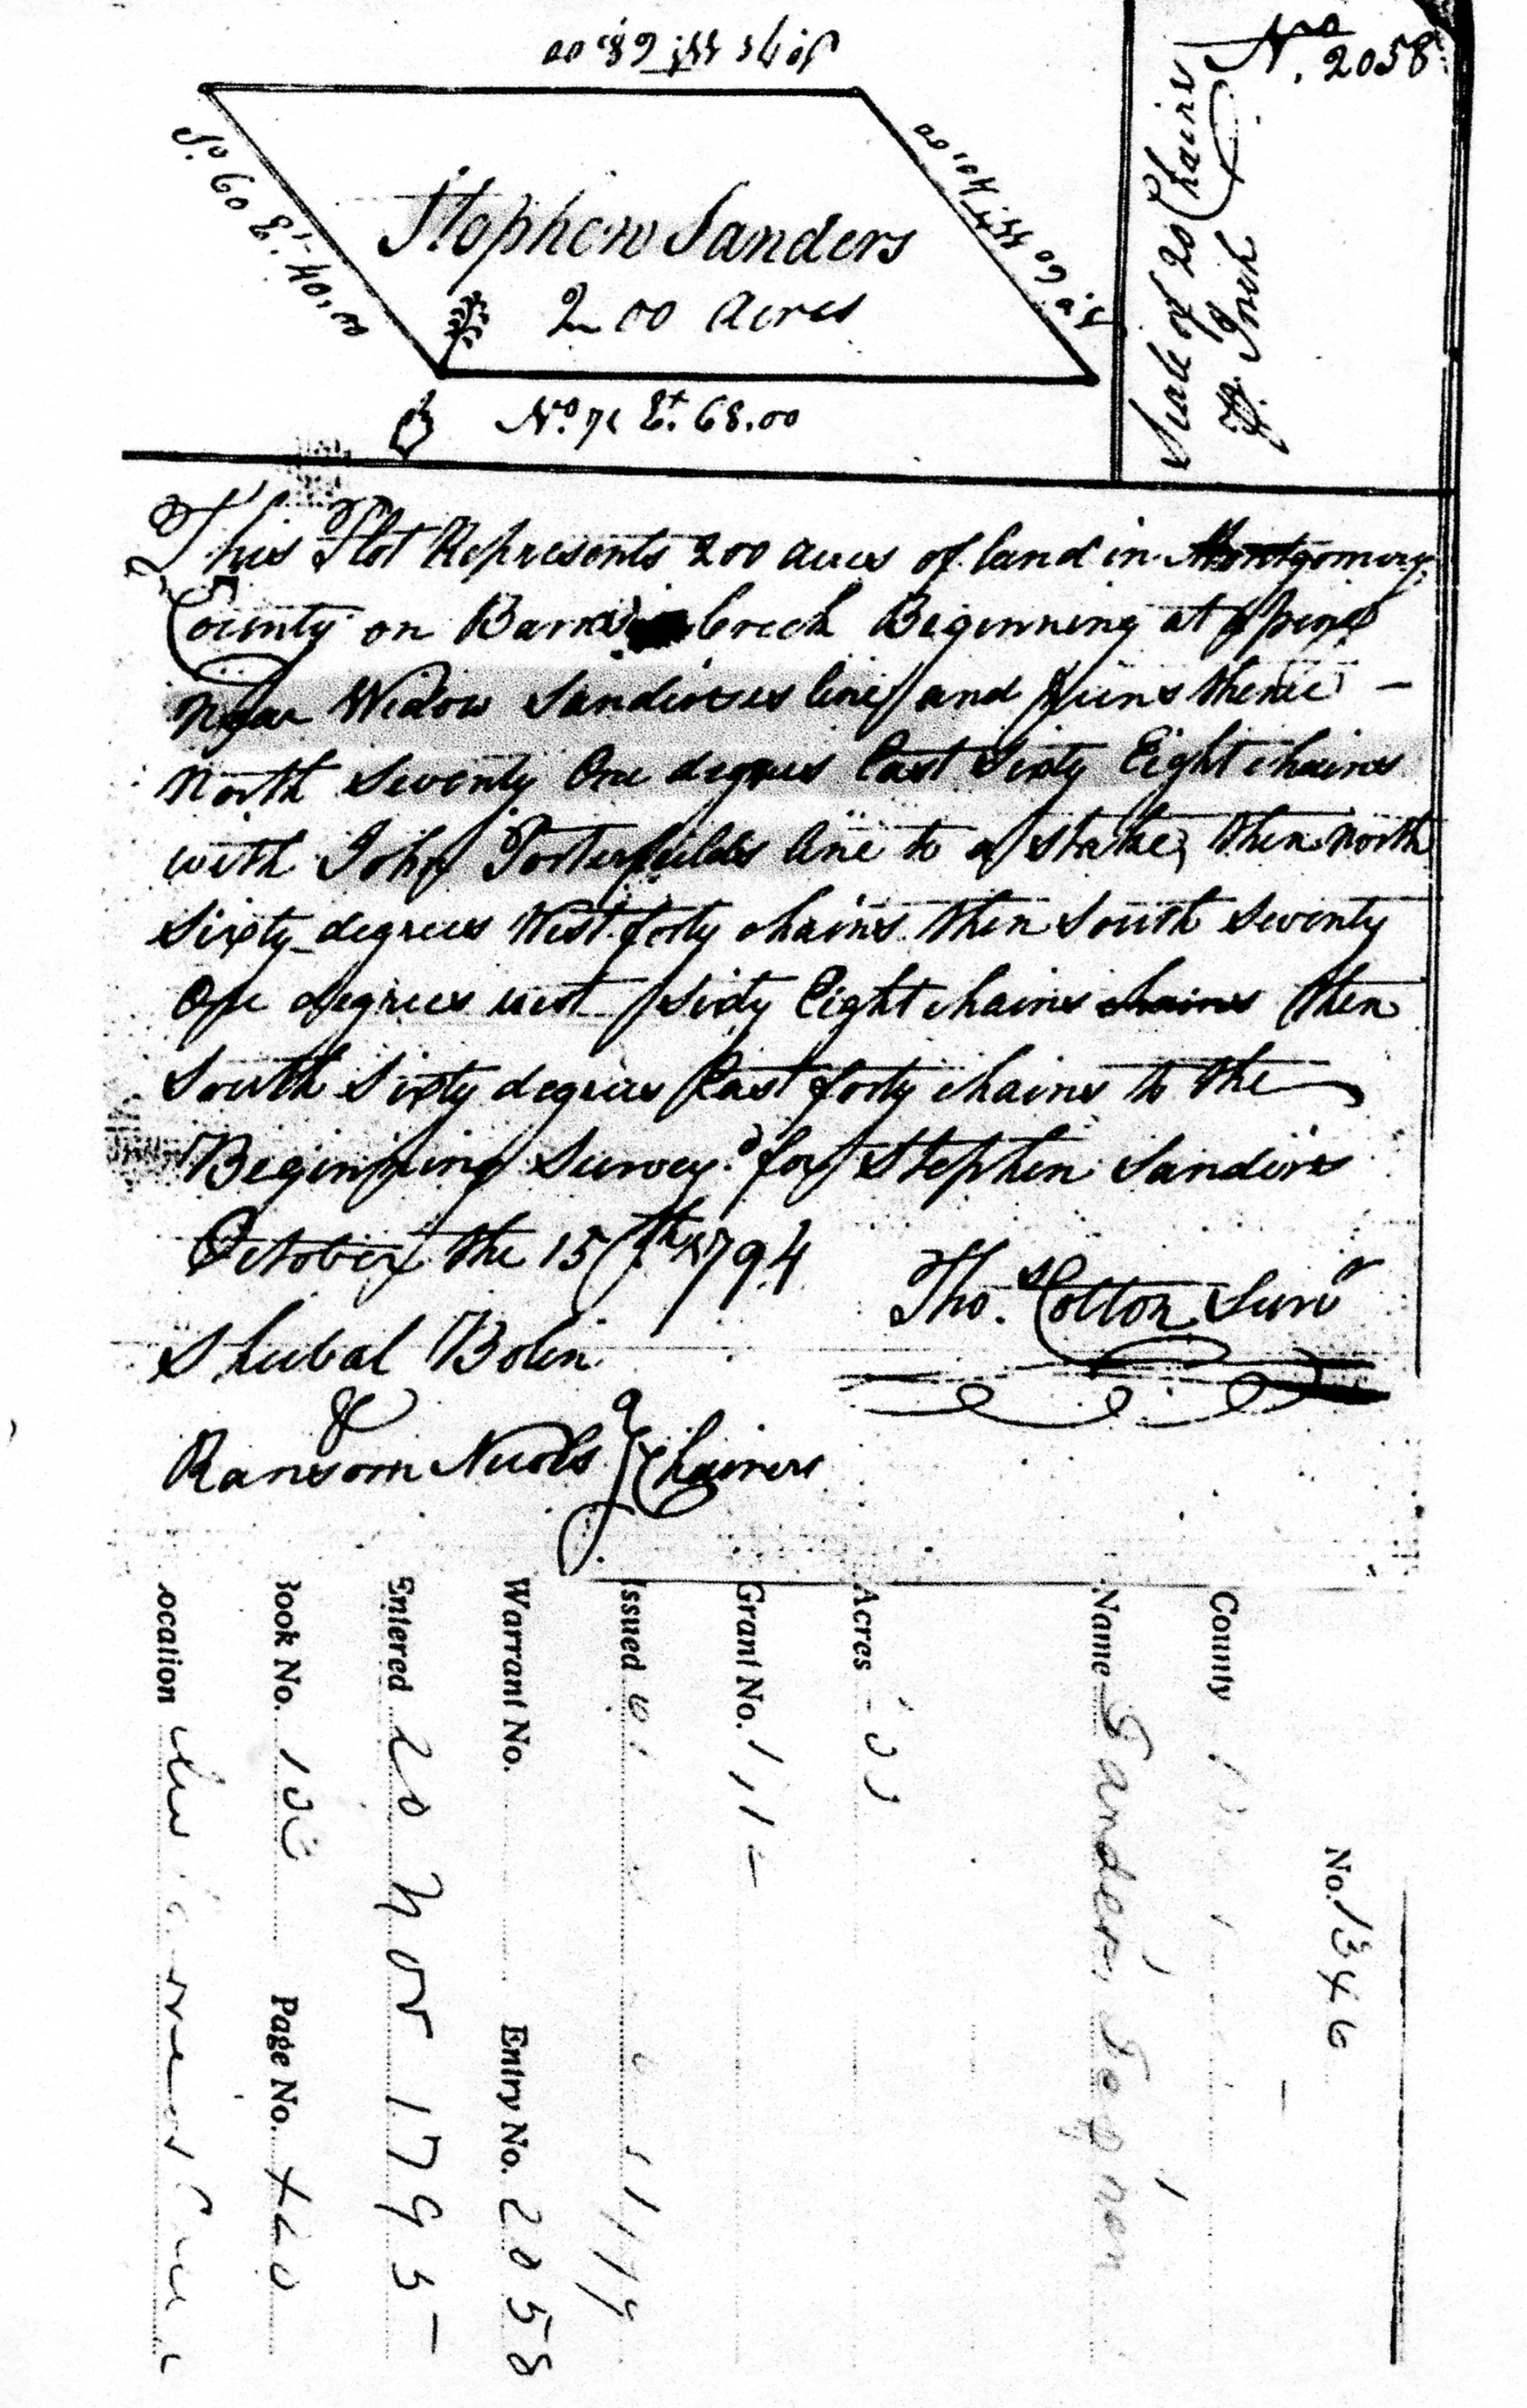 So. 71 Wt. 68.00
So. 60 E. 40.00
No. 60 Wt. 40.00
Stephen Sanders
200 acres
No. 71 Et. 68.00
Scale of 20 Chains
Pr. Inch
No. 2058
This Plot Represents 200 acres of land in Montgomery
County on Creek Beginning at a pine
Near Widow line and Runs thence –
North Seventy One degrees East Sixty Eight chains
with John Porterfields line to a stake, then North
Sixty degrees West forty chains then South Seventy
One degrees west Sixty Eight chains chains then
South Sixty degrees East forty chains to the
Beginning Survey.d for Stephen Sanders
October the 15th 1794
Thos. Cotton Survr
Shubal Bolin
&
Ransom Chainers
No. 1346
County
Name Sanders, Stephen
Acres
Grant No.
Issued
Warrant No. Entry No. 2058
Entered 20 Nov 1795
Book No. Page No.
ocation